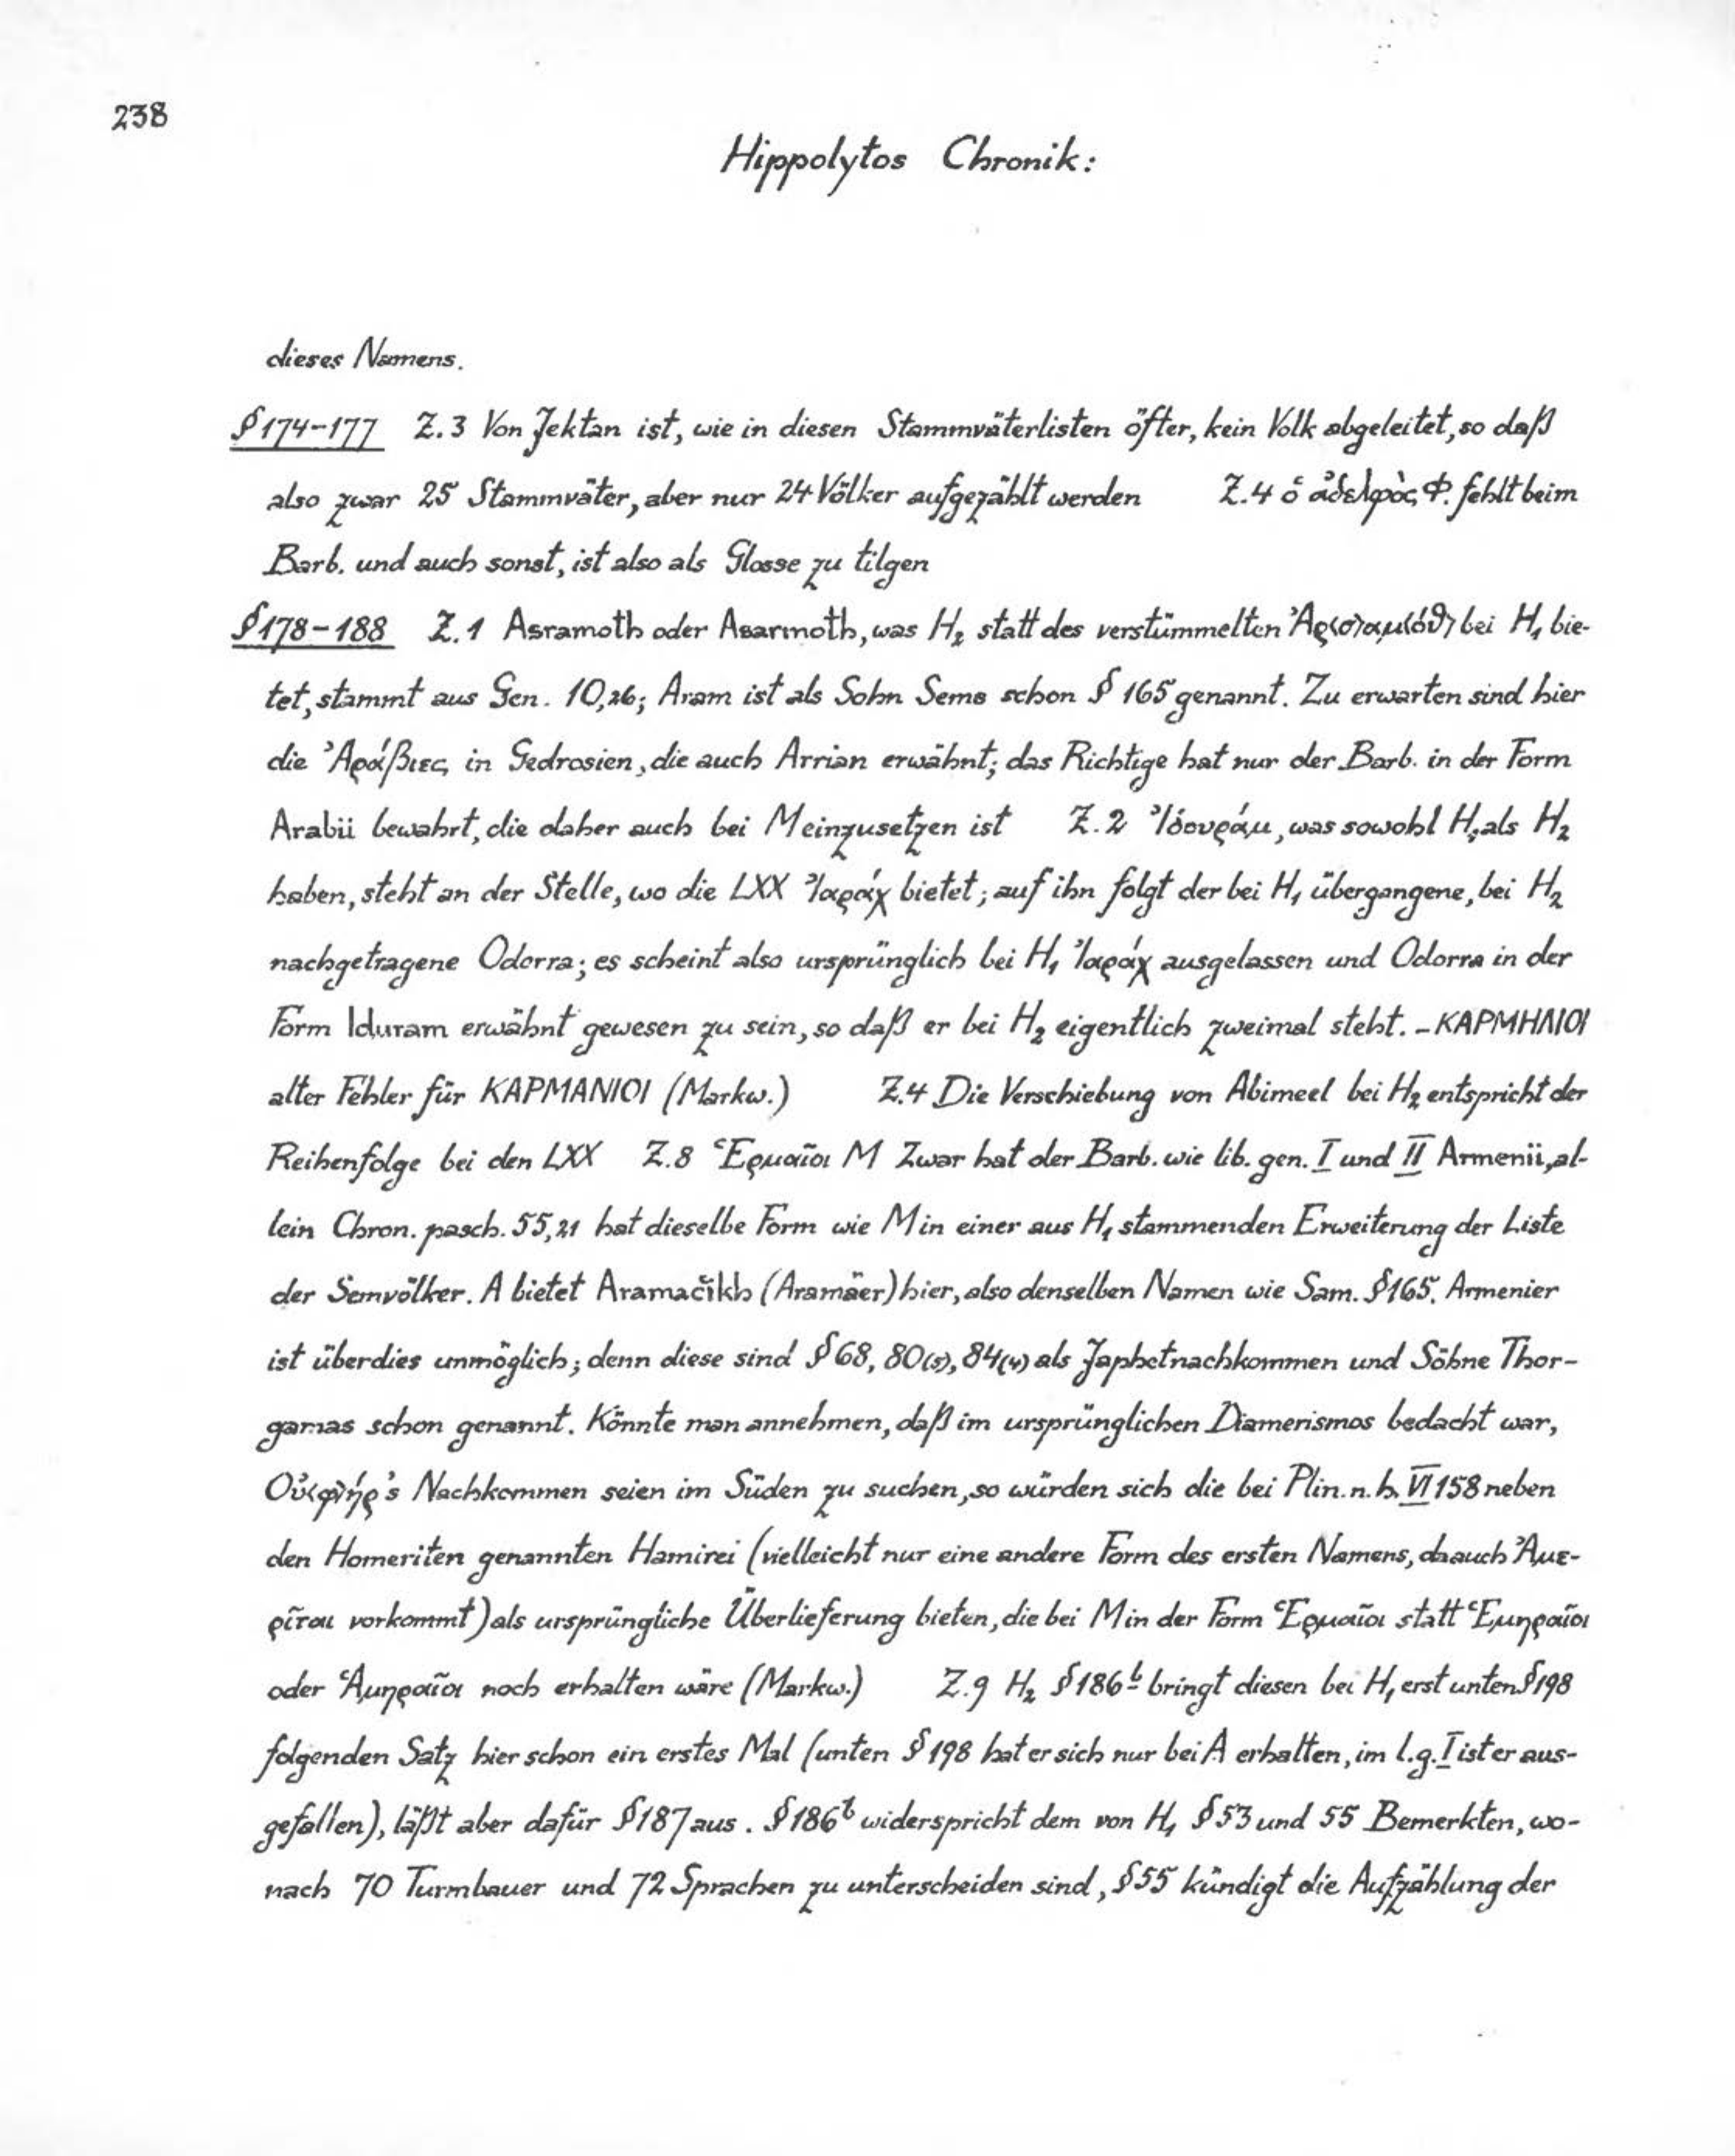 238
Hippolytos Chronik:
dieses Namens.
§174-177 Z.3 Von Jektan ist, wie in diesen Stammväterlisten öfter, kein Volk abgeleitet, so daß
also zwar 25 Stammväter, aber nur 24 Völker aufgezählt werden Z.4 ὁ ἀδελφὸς Φ. fehlt beim
Barb. und auch sonst, ist also als Glosse zu tilgen
§178-188 Z.1 Asramoth oder Asarmoth, was H₂ statt des verstümmelten Ἀρ<σ>αμ<ώθ> bei H₁ bie-
tet, stammt aus Gen. 10,26; Aram ist als Sohn Sems schon § 165 genannt. Zu erwarten sind hier
die Ἀράβιες in Gedrosien, die auch Arrian erwähnt; das Richtige hat nur der Barb. in der Form
Arabii bewahrt, die daher auch bei M einzusetzen ist Z.2 Ἰδουράμ, was sowohl H₁ als H₂
haben, steht an der Stelle, wo die LXX Ἰαράχ bietet; auf ihn folgt der bei H₁ übergangene, bei H₂
nachgetragene Odorra; es scheint also ursprünglich bei H₁ Ἰαράχ ausgelassen und Odorra in der
Form Iduram erwähnt gewesen zu sein, so daß er bei H₂ eigentlich zweimal steht. - ΚΑΡΜΗΛΙΟΙ
alter Fehler für ΚΑΡΜΑΝΙΟΙ (Markw.) Z.4 Die Verschiebung von Abimeel bei H₂ entspricht der
Reihenfolge bei den LXX Z.8 Ἑρμαῖοι M Zwar hat der Barb. wie lib. gen. I und II Armenii, al-
lein Chron. pasch. 55,21 hat dieselbe Form wie M in einer aus H₁ stammenden Erweiterung der Liste
der Semvölker. A bietet Aramačikh (Aramäer) hier, also denselben Namen wie Sam. §165. Armenier
ist überdies unmöglich; denn diese sind § 68, 80(5), 84(4) als Japhetnachkommen und Söhne Thor-
gamas schon genannt. Könnte man annehmen, daß im ursprünglichen Diamerismos bedacht war,
Οὐ<φ>ήρ's Nachkommen seien im Süden zu suchen, so würden sich die bei Plin. n. h. VI 158 neben
den Homeriten genannten Hamirei (vielleicht nur eine andere Form des ersten Namens, da auch Ἀμε-
ρῖται vorkommt) als ursprüngliche Überlieferung bieten, die bei M in der Form Ἑρμαῖοι statt Ἑμηραῖοι
oder Ἁμηραῖοι noch erhalten wäre (Markw.) Z.9 H₂ §186ᵇ bringt diesen bei H₁ erst unten §198
folgenden Satz hier schon ein erstes Mal (unten § 198 hat er sich nur bei A erhalten, im l.g. I ist er aus-
gefallen), läßt aber dafür §187 aus. §186ᵇ widerspricht dem von H₁ §53 und 55 Bemerkten, wo-
nach 70 Turmbauer und 72 Sprachen zu unterscheiden sind, §55 kündigt die Aufzählung der